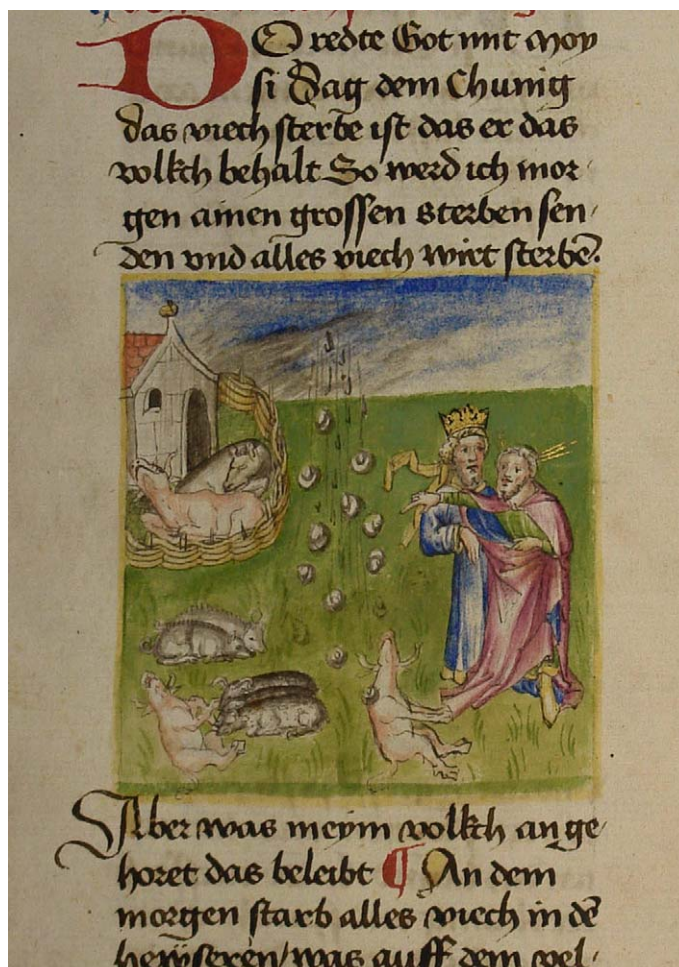 DO redte Got mit Moy
si Sag dem Chunig
das viech sterbe ist das er das
volkch behalt So werd ich mor
gen ainen grossen sterben sen
den vnd alles viech wirt sterbē.
Aber was meym volkch an ge
horet das beleibt ¶ An dem
morgen starb alles viech in dē
hewseren / was auff dem vel